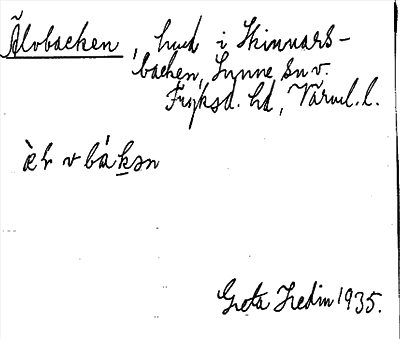 Älvbacken, hmd i Skinnars-
backen, Sunne sn v.
Fryksd. hd, Värml. l.
æ̀ƚvbákən
Greta Hedin 1935.